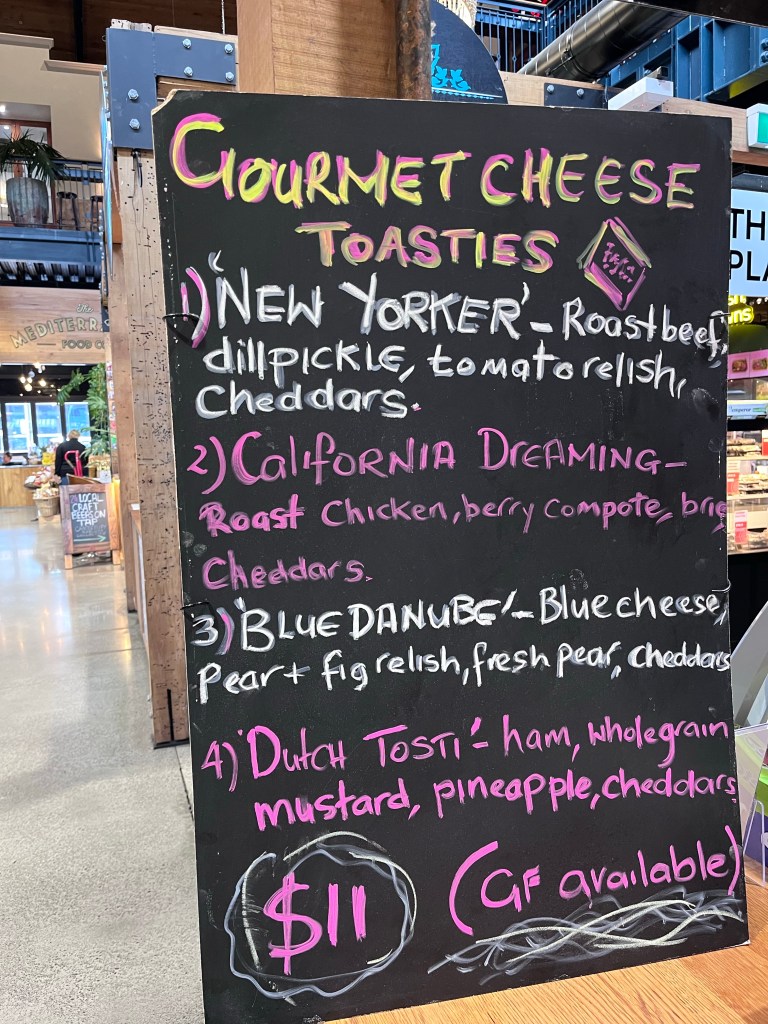 GOURMET CHEESE
TOASTIES
1) 'NEW YORKER' - Roast beef,
dillpickle, tomato relish,
Cheddars.
2) CALIFORNIA DREAMING -
Roast Chicken, berry compote, brie
Cheddars.
3) 'BLUE DANUBE' - Blue cheese,
Pear + fig relish, fresh pear, cheddars
4) 'DUTCH TOSTI' - ham, wholegrain
mustard, pineapple, cheddars
$11
(GF available)
The
MEDITERR
FOOD CO
LOCAL
CRAFT
BEERS ON
TAP
TH
PLA